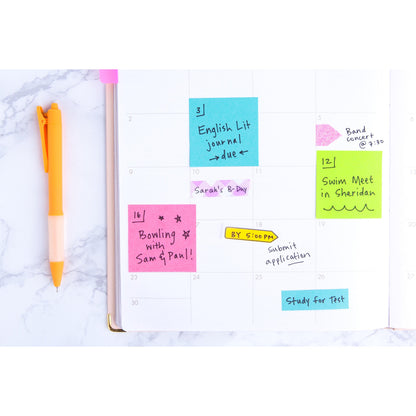 2
3
English Lit
journal
→ due ←
5
Band
concert
@ 7:30
9
10
11
12
Swim Meet
in Sheridan
Sarah's B-Day
16
Bowling
with
Sam & Paul!
BY 5:00 PM
Submit
application
23
24
25
26
Study for Test
30